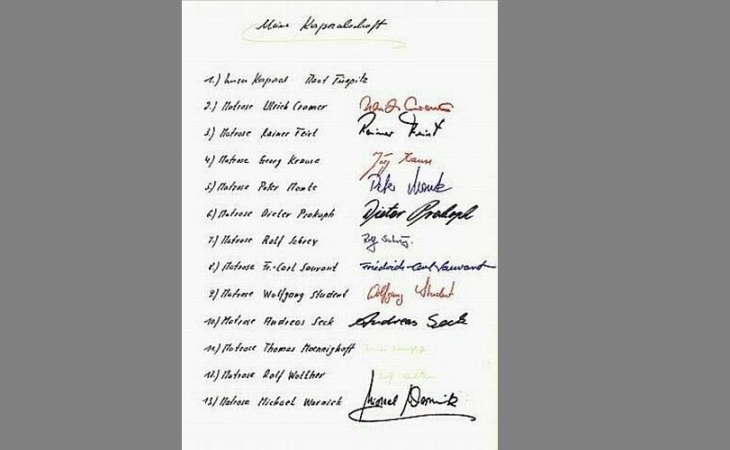 Meine Korporalschaft
1.) Unser Korporal Maat Tirpitz
2.) Matrose Ulrich Cramer
3.) Matrose Rainer Feist Rainer Feist
4.) Matrose Georg Krause Krause
5.) Matrose Peter Monte Peter
6.) Matrose Dieter Prokoph Dieter Prokoph
7.) Matrose Rolf
8.) Matrose Fr.-Carl Sauvant Friedrich-Carl Sauvant
9.) Matrose Wolfgang Student Wolfgang Student
10.) Matrose Andreas Seck Andreas Seck
11.) Matrose Thomas Moennighoff
12.) Matrose Rolf Walther
13.) Matrose Michael Warnick